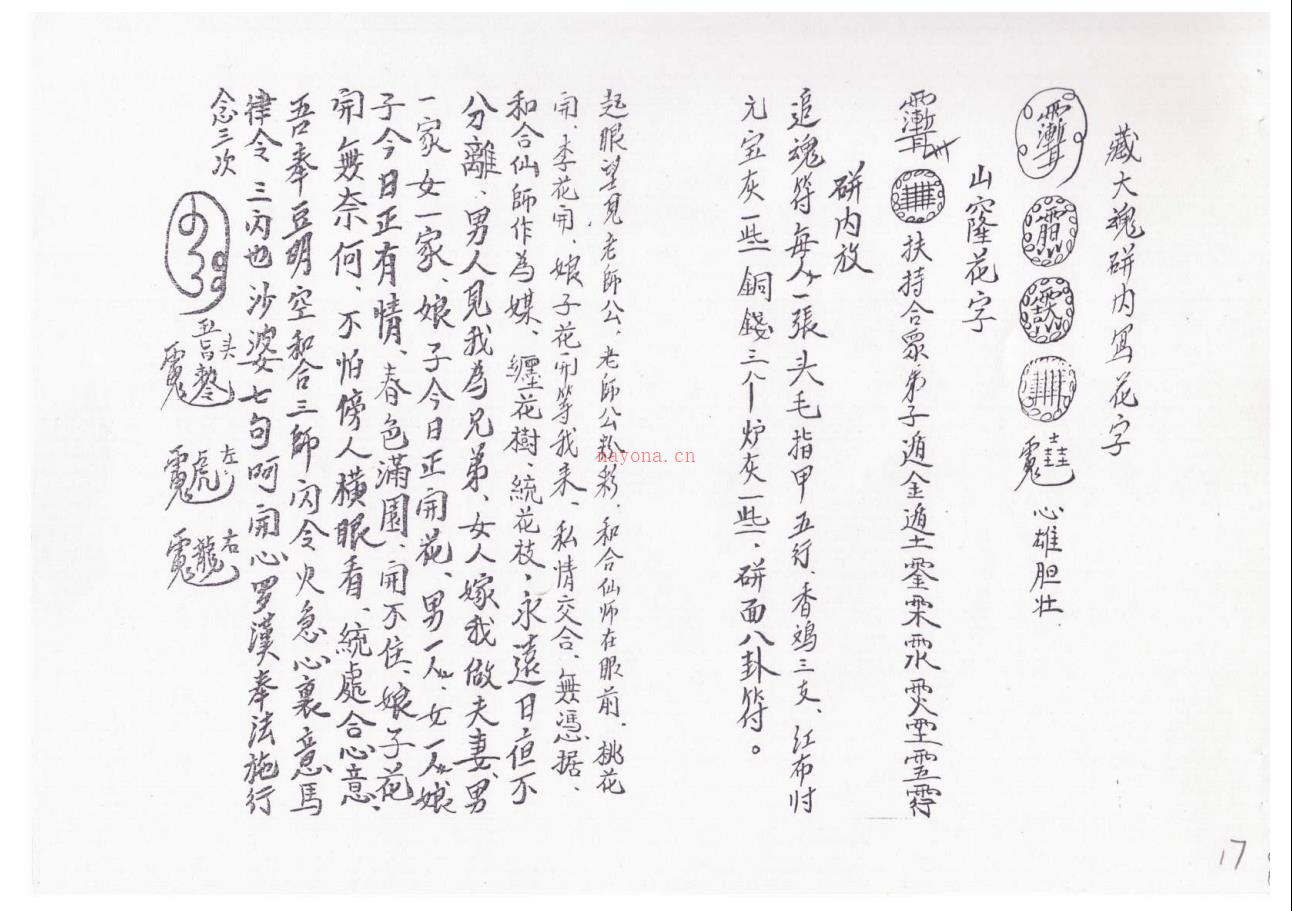 藏大魂硑内寫花字
心雄胆壮
山窿花字
扶持合眾弟子遁金遁土
硑内放
追魂符每人一張头毛指甲五行、香鸡三支、红布
元宝灰一些銅錢三个炉灰一些、硑面八卦符。
起眼望見老師公、老師公教、和合仙师在眼前、桃花
開、李花開、娘子花開等我来、私情交合、無憑据、
和合仙師作為媒、纏花樹、統花枝、永遠日夜不
分離、男人見我為兄弟、女人嫁我做夫妻、男
一家女一家、娘子今日正開花、男一人、女一人、娘
子今日正有情、春色滿園、開不住、娘子花
開無奈何、不怕傍人橫眼看、統處合心意、
吾奉豆明空和合三師闪令火急心裏意馬
律令 三闪也沙婆七句呵開心罗漢奉法施行
念三次
头
左
虎
右
龍
nayona.cn
17